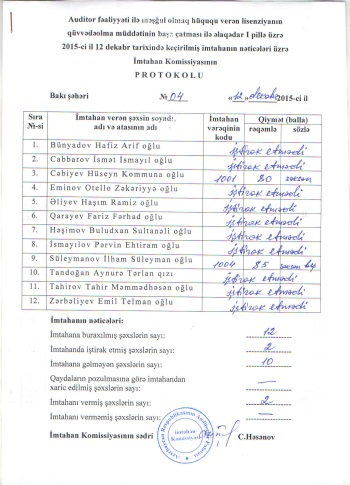 Auditor fəaliyyəti ilə məşğul olmaq hüququ verən lisenziyanın
qüvvədəolma müddətinin başa çatması ilə əlaqədar I pillə üzrə
2015-ci il 12 dekabr tarixində keçirilmiş imtahanın nəticələri üzrə
İmtahan Komissiyasının
P R O T O K O L U
Bakı şəhəri № 04 „12„ dekabr 2015-ci il
Sıra №-si İmtahan verən şəxsin soyadı, adı və atasının adı İmtahan vərəqinin kodu Qiymət (balla) rəqəmlə sözlə
1. Bünyadov Hafiz Arif oğlu iştirak etmədi
2. Cabbarov İsmət İsmayıl oğlu iştirak etmədi
3. Cəbiyev Hüseyn Kommuna oğlu 1001 80 səksən
4. Eminov Otello Zəkəriyyə oğlu iştirak etmədi
5. Əliyev Haşım Ramiz oğlu iştirak etmədi
6. Qarayev Fariz Fərhad oğlu iştirak etmədi
7. Həşimov Buludxan Sultanəli oğlu iştirak etmədi
8. İsmayılov Pərvin Ehtiram oğlu iştirak etmədi
9. Süleymanov İlham Süleyman oğlu 1004 85 səksən beş
10. Tandoğan Aynurə Tərlan qızı iştirak etmədi
11. Tahirov Tahir Məmmədhəsən oğlu iştirak etmədi
12. Zərbəliyev Emil Telman oğlu iştirak etmədi
İmtahanın nəticələri:
İmtahana buraxılmış şəxslərin sayı: 12
İmtahanda iştirak etmiş şəxslərin sayı: 2
İmtahana gəlməyən şəxslərin sayı: 10
Qaydaların pozulmasına görə imtahandan
xaric edilmiş şəxslərin sayı: —
İmtahanı vermiş şəxslərin sayı: 2
İmtahanı verməmiş şəxslərin sayı: —
İmtahan Komissiyasının sədri C.Həsənov
Azərbaycan Respublikasının Auditorlar Palatası
İmtahan
Komissiyası